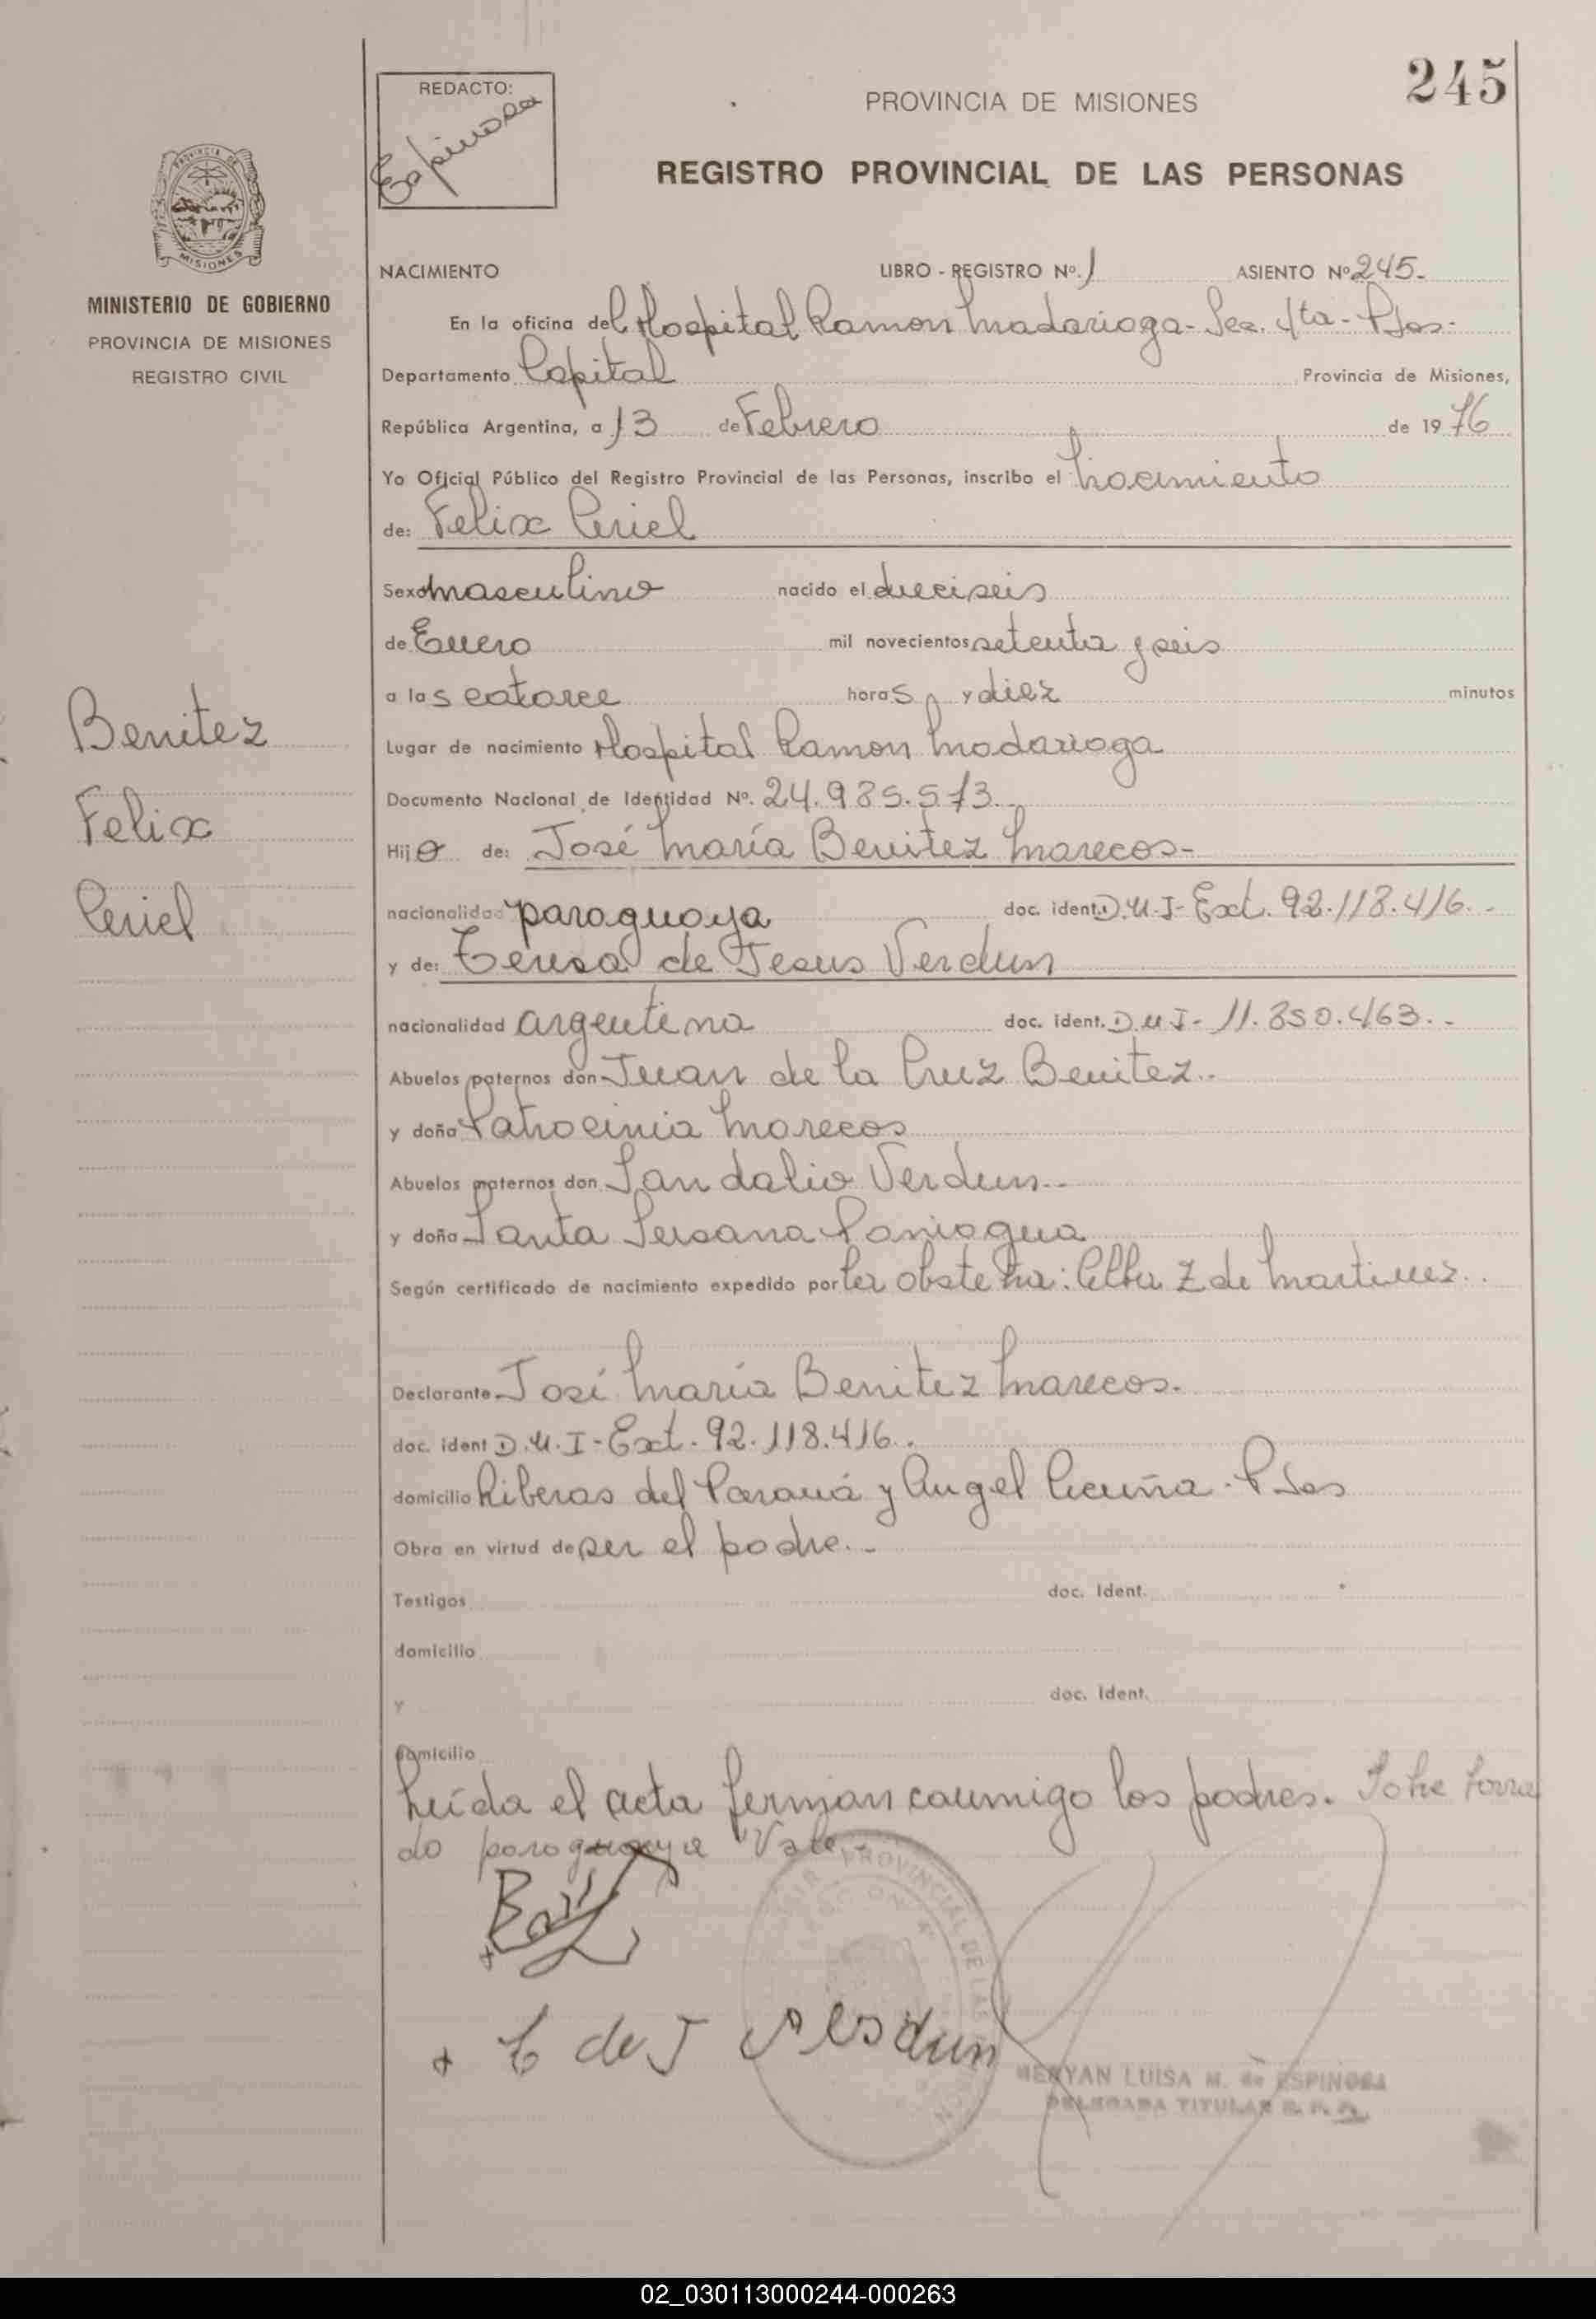 245
REDACTO:
Espinosa
PROVINCIA DE MISIONES
REGISTRO PROVINCIAL DE LAS PERSONAS
PROVINCIA DE
MISIONES
MINISTERIO DE GOBIERNO
PROVINCIA DE MISIONES
REGISTRO CIVIL
Benitez
Felix
Ceriel
NACIMIENTO LIBRO - REGISTRO Nº. 1 ASIENTO Nº 245.
En la oficina del Hospital Ramon Madariaga - Sec. 4ta - Psas.
Departamento Capital Provincia de Misiones,
República Argentina, a 13 de Febrero de 1976
Yo Oficial Público del Registro Provincial de las Personas, inscribo el nacimiento
de: Felix Ceriel
Sexo masculino nacido el dieciseis
de Enero mil novecientos setenta y seis
a las catorce horas y diez minutos
Lugar de nacimiento Hospital Ramon Madariaga
Documento Nacional de Identidad Nº. 24.985.573.-
Hijo de: José María Benitez Marecos-
nacionalidad paraguaya doc. ident. D.U.I-Ext. 92.118.416.-
y de: Teresa de Jesus Verdun
nacionalidad argentina doc. ident. D.U.I- 11.850.463.-
Abuelos paternos don Juan de la Cruz Benitez.-
y doña Patrocinia Marecos
Abuelos maternos don Sandalio Verdun.-
y doña Santa Paniagua
Según certificado de nacimiento expedido por la obstetra: Elba Z de Martinez.
Declarante José María Benitez Marecos.
doc. ident D.U.I-Ext. 92.118.416.
domicilio Riberas del Paraná y Angel Acuña - Psas
Obra en virtud de ser el padre.-
Testigos doc. Ident.
domicilio
y doc. Ident.
domicilio
Leída el acta firman conmigo los padres. Sobre borra
do paraguaya "Vale.-
T de J Verdun
MERYAN LUISA M. de ESPINOSA
DELEGADA TITULAR R. P. P.
02_030113000244-000263